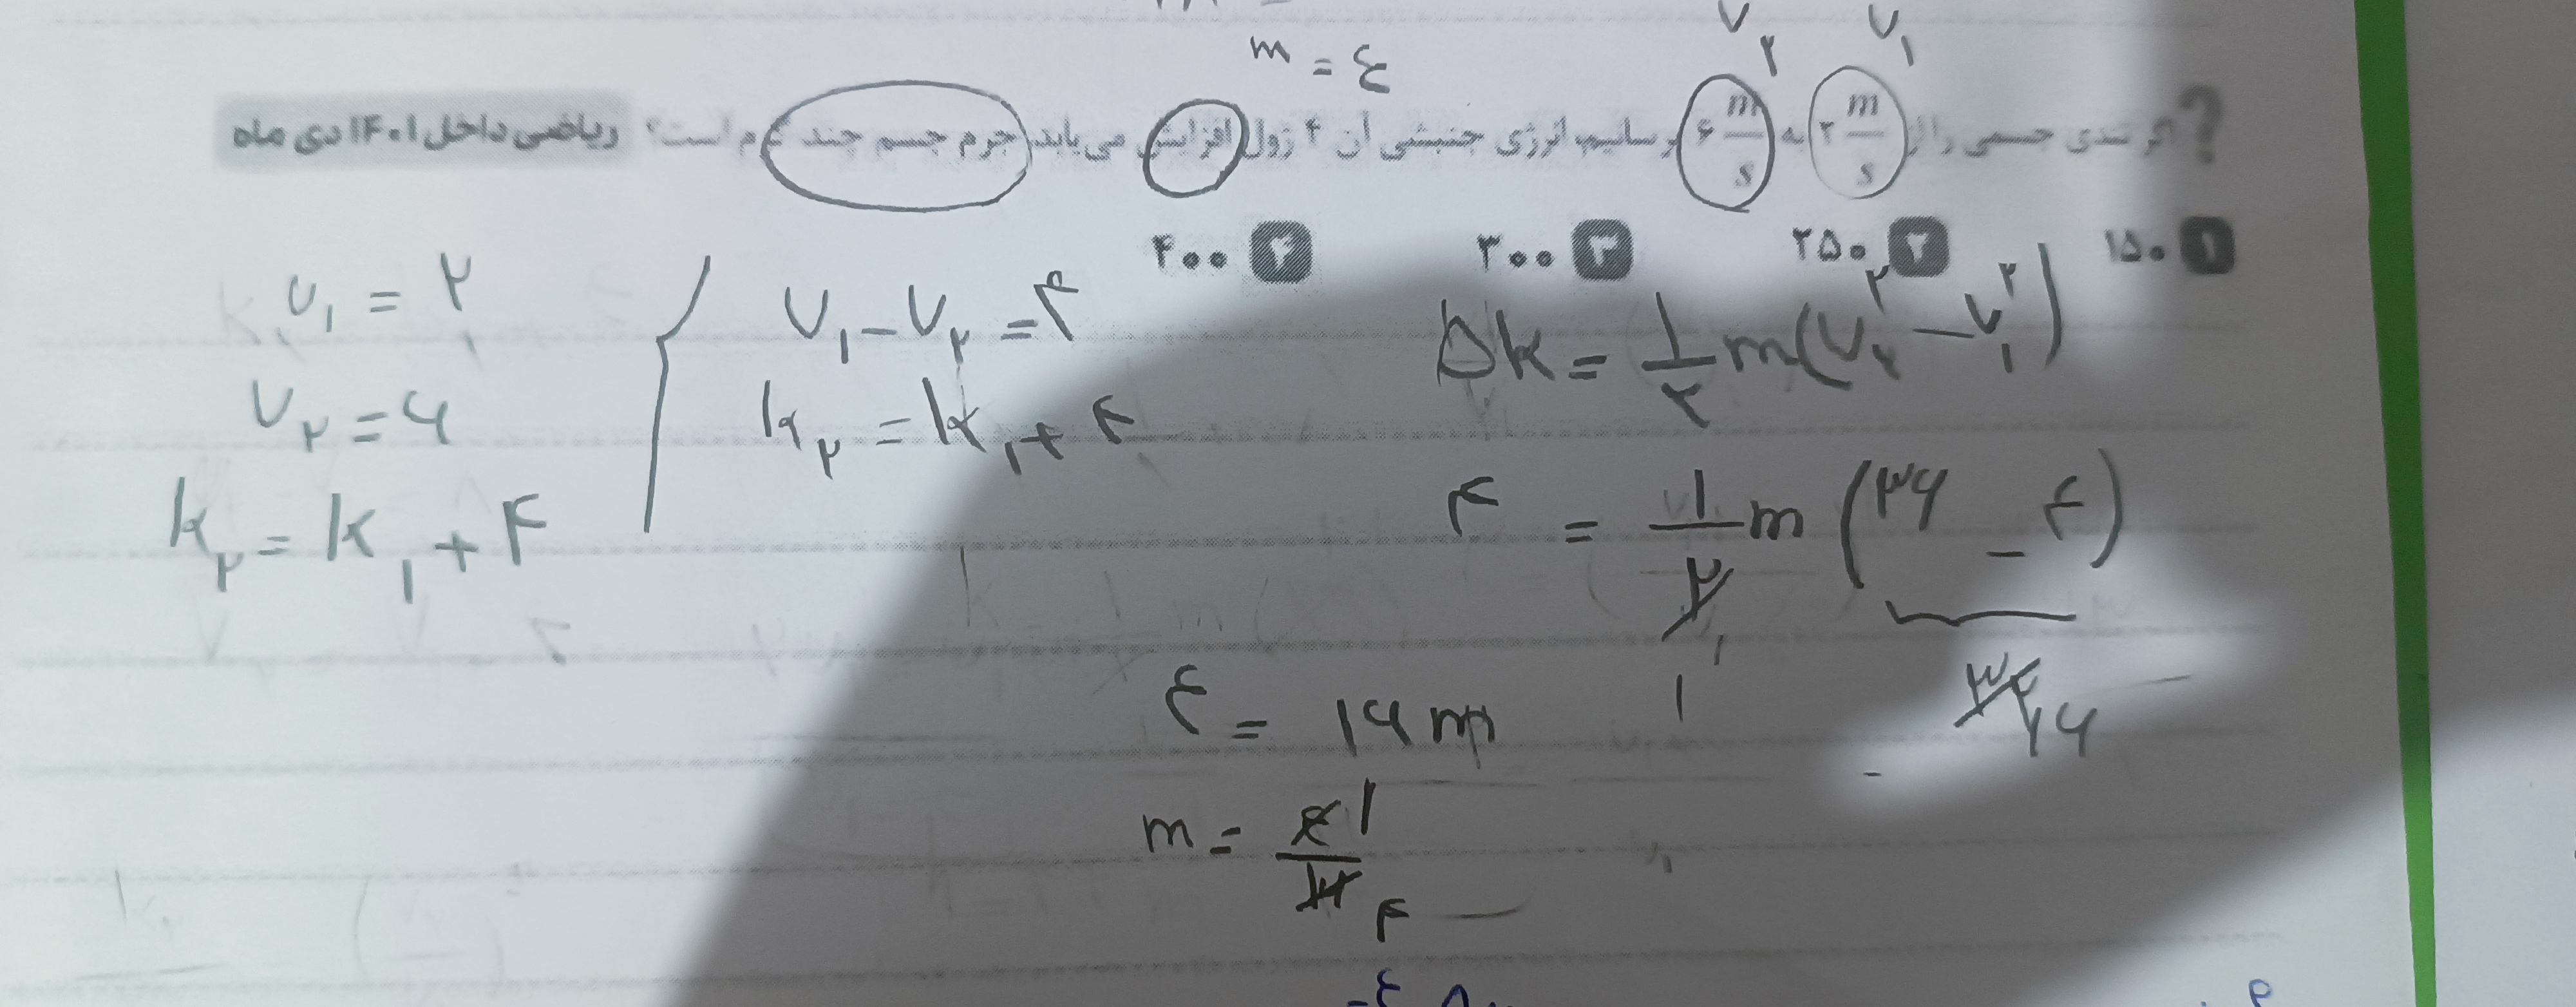 m = ع
V۲ V۱
? اگر تندی جسمی را از ۲ m/s به ۶ m/s برسانیم، انرژی جنبشی آن ۴ ژول افزایش می‌یابد، جرم جسم چند گرم است؟ ریاضی داخل ۱۴۰۱ دی ماه
۱ ۱۵۰ ۲ ۲۵۰ ۳ ۳۰۰ ۴ ۴۰۰
V۱ = ۲
V۲ = ۶
K۲ = K۱ + ۴
V۱ – V۲ = ۴
K۲ = K۱ + ۴
Δk = ۱/۲ m(V۲² – V۱²)
۴ = ۱/۲ m (۳۶ – ۴)
۳۲ ۱۶
۱
۴ = ۱۶ m
m = ۴/۱۶ ۱/۴